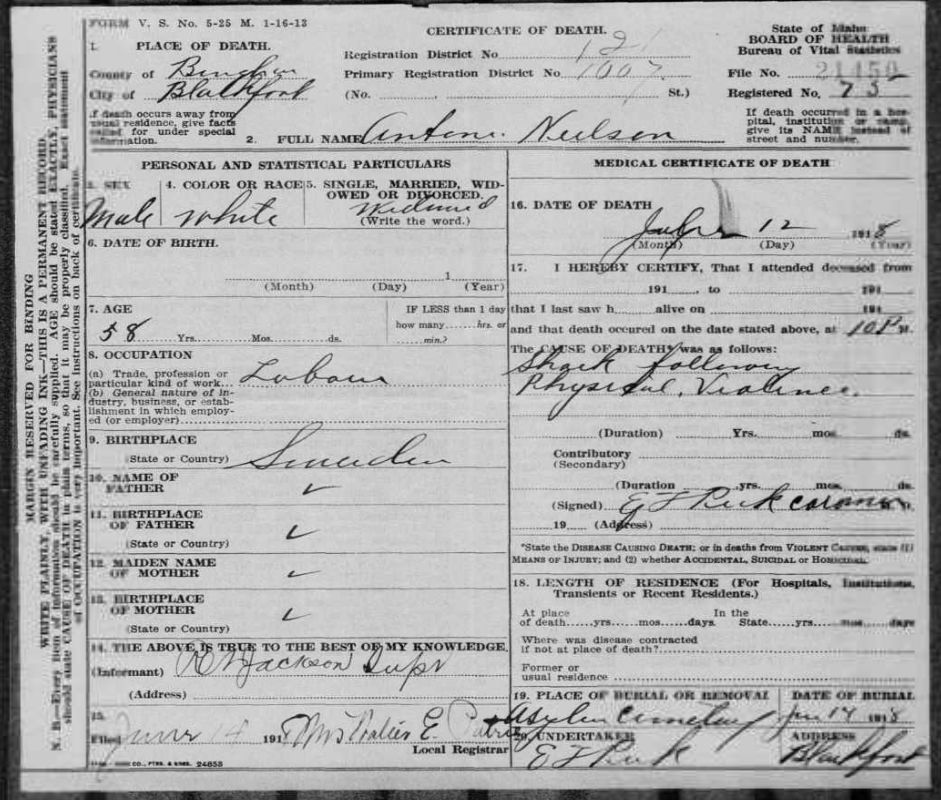 FORM V. S. No. 5-25 M. 1-16-13
CERTIFICATE OF DEATH.
State of Idaho
BOARD OF HEALTH
Bureau of Vital Statistics
1. PLACE OF DEATH.
Registration District No 121
County of Bingham
Primary Registration District No 1007.
File No. 21450
City of Blackfoot
(No. St.)
Registered No. 73
If death occurs away from usual residence, give facts called for under special information.
If death occurred in a hospital, institution or camp, give its NAME instead of street and number.
2. FULL NAME Antone Neilson
PERSONAL AND STATISTICAL PARTICULARS
3. SEX
Male
4. COLOR OR RACE
White
5. SINGLE, MARRIED, WIDOWED OR DIVORCED.
Widowed
(Write the word.)
6. DATE OF BIRTH.
1
(Month) (Day) (Year)
7. AGE
58 Yrs. Mos. ds.
IF LESS than 1 day
how many hrs. or
min.?
8. OCCUPATION
(a) Trade, profession or
particular kind of work Labour
(b) General nature of in-
dustry, business, or estab-
lishment in which employ-
ed (or employer)
9. BIRTHPLACE
(State or Country) Sweeden
10. NAME OF
FATHER ✓
11. BIRTHPLACE
OF FATHER ✓
(State or Country)
12. MAIDEN NAME
OF MOTHER ✓
13. BIRTHPLACE
OF MOTHER ✓
(State or Country)
14. THE ABOVE IS TRUE TO THE BEST OF MY KNOWLEDGE.
(Informant) Jackson Supt
(Address)
15.
Filed June 14 191
Local Registrar
24653
MEDICAL CERTIFICATE OF DEATH
16. DATE OF DEATH
12 1918
(Month) (Day) (Year)
17. I HEREBY CERTIFY, That I attended deceased from
191 , to 191
that I last saw h alive on 191
and that death occured on the date stated above, at 10 P M.
The CAUSE OF DEATH* was as follows:
Shock following
Physical Violence.
(Duration) Yrs. mos. ds.
Contributory
(Secondary)
(Duration) yrs. mos. ds.
(Signed) E T Peck coroner
19 (Address)
*State the DISEASE CAUSING DEATH; or in deaths from VIOLENT CAUSES, state (1)
MEANS OF INJURY; and (2) whether ACCIDENTAL, SUICIDAL or HOMICIDAL.
18. LENGTH OF RESIDENCE (For Hospitals, Institutions,
Transients or Recent Residents.)
At place In the
of death yrs. mos. days. State yrs. mos. days
Where was disease contracted
if not at place of death?
Former or
usual residence
19. PLACE OF BURIAL OR REMOVAL
Asylum Cemetery
DATE OF BURIAL
14 1918
20. UNDERTAKER
E T Peck
ADDRESS
Blackfoot
MARGIN RESERVED FOR BINDING
WRITE PLAINLY, WITH UNFADING INK—THIS IS A PERMANENT RECORD.
N. B.—Every item of information should be carefully supplied. AGE should be stated EXACTLY, PHYSICIANS
should state CAUSE OF DEATH in plain terms, so that it may be properly classified. Exact statement
of OCCUPATION is very important. See instructions on back of certificate.